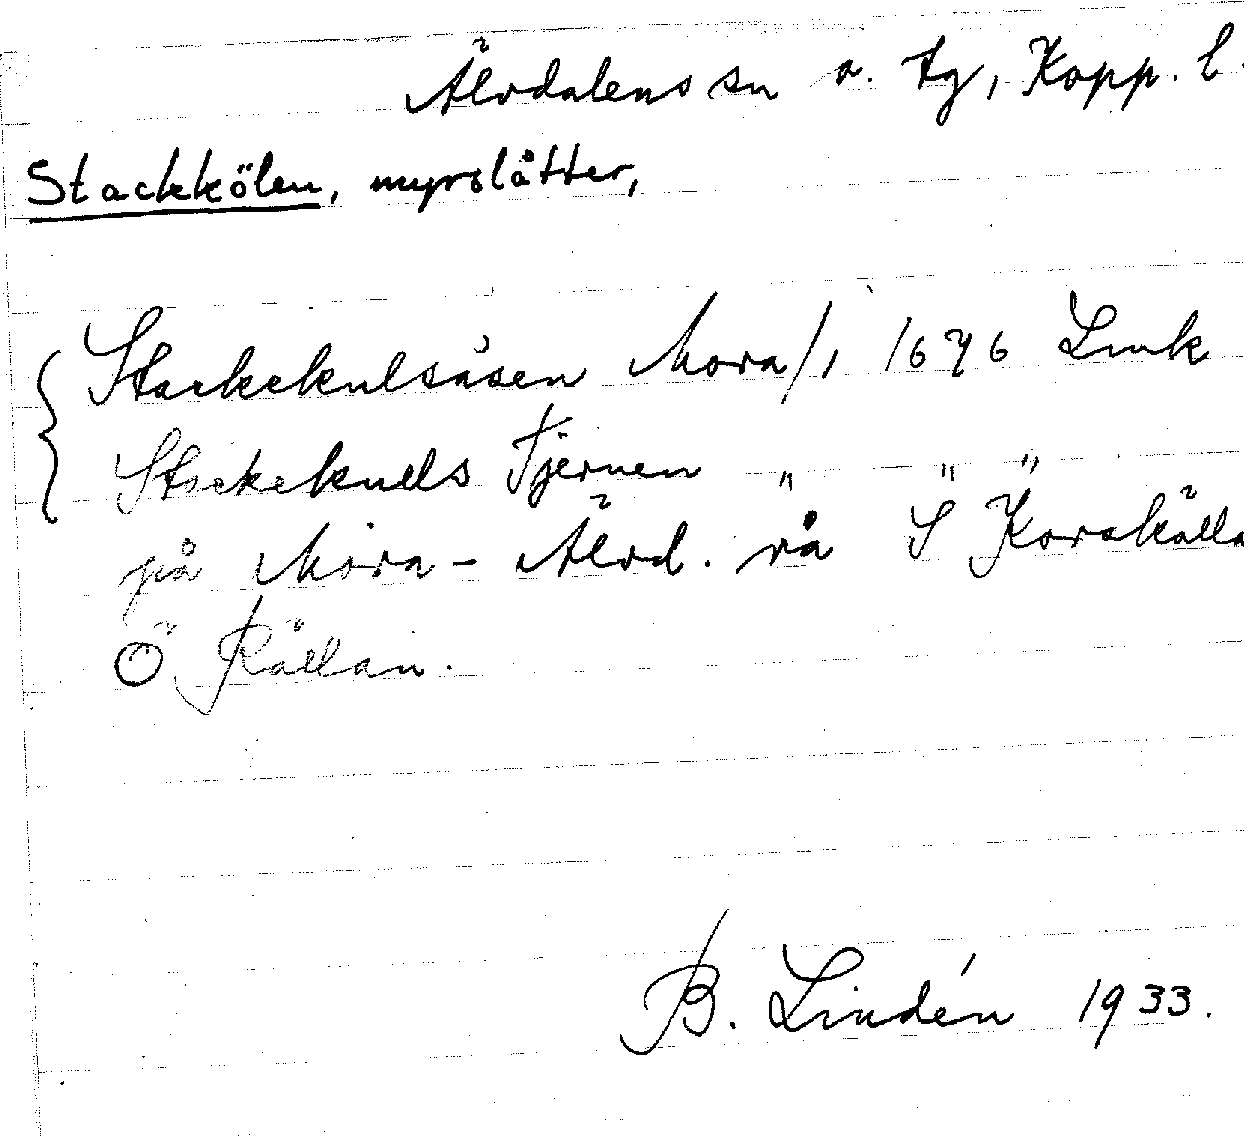 Älvdalens sn o. tg, Kopp. l.
Stackkölen, myrslåtter,
Stackekulsåsen Mora/1 1676 Lmk
Stackekulls Tjernen " " "
på Mora - Älvd. rå S Korskälla
Ö Rällan.
B. Lindén 1933.